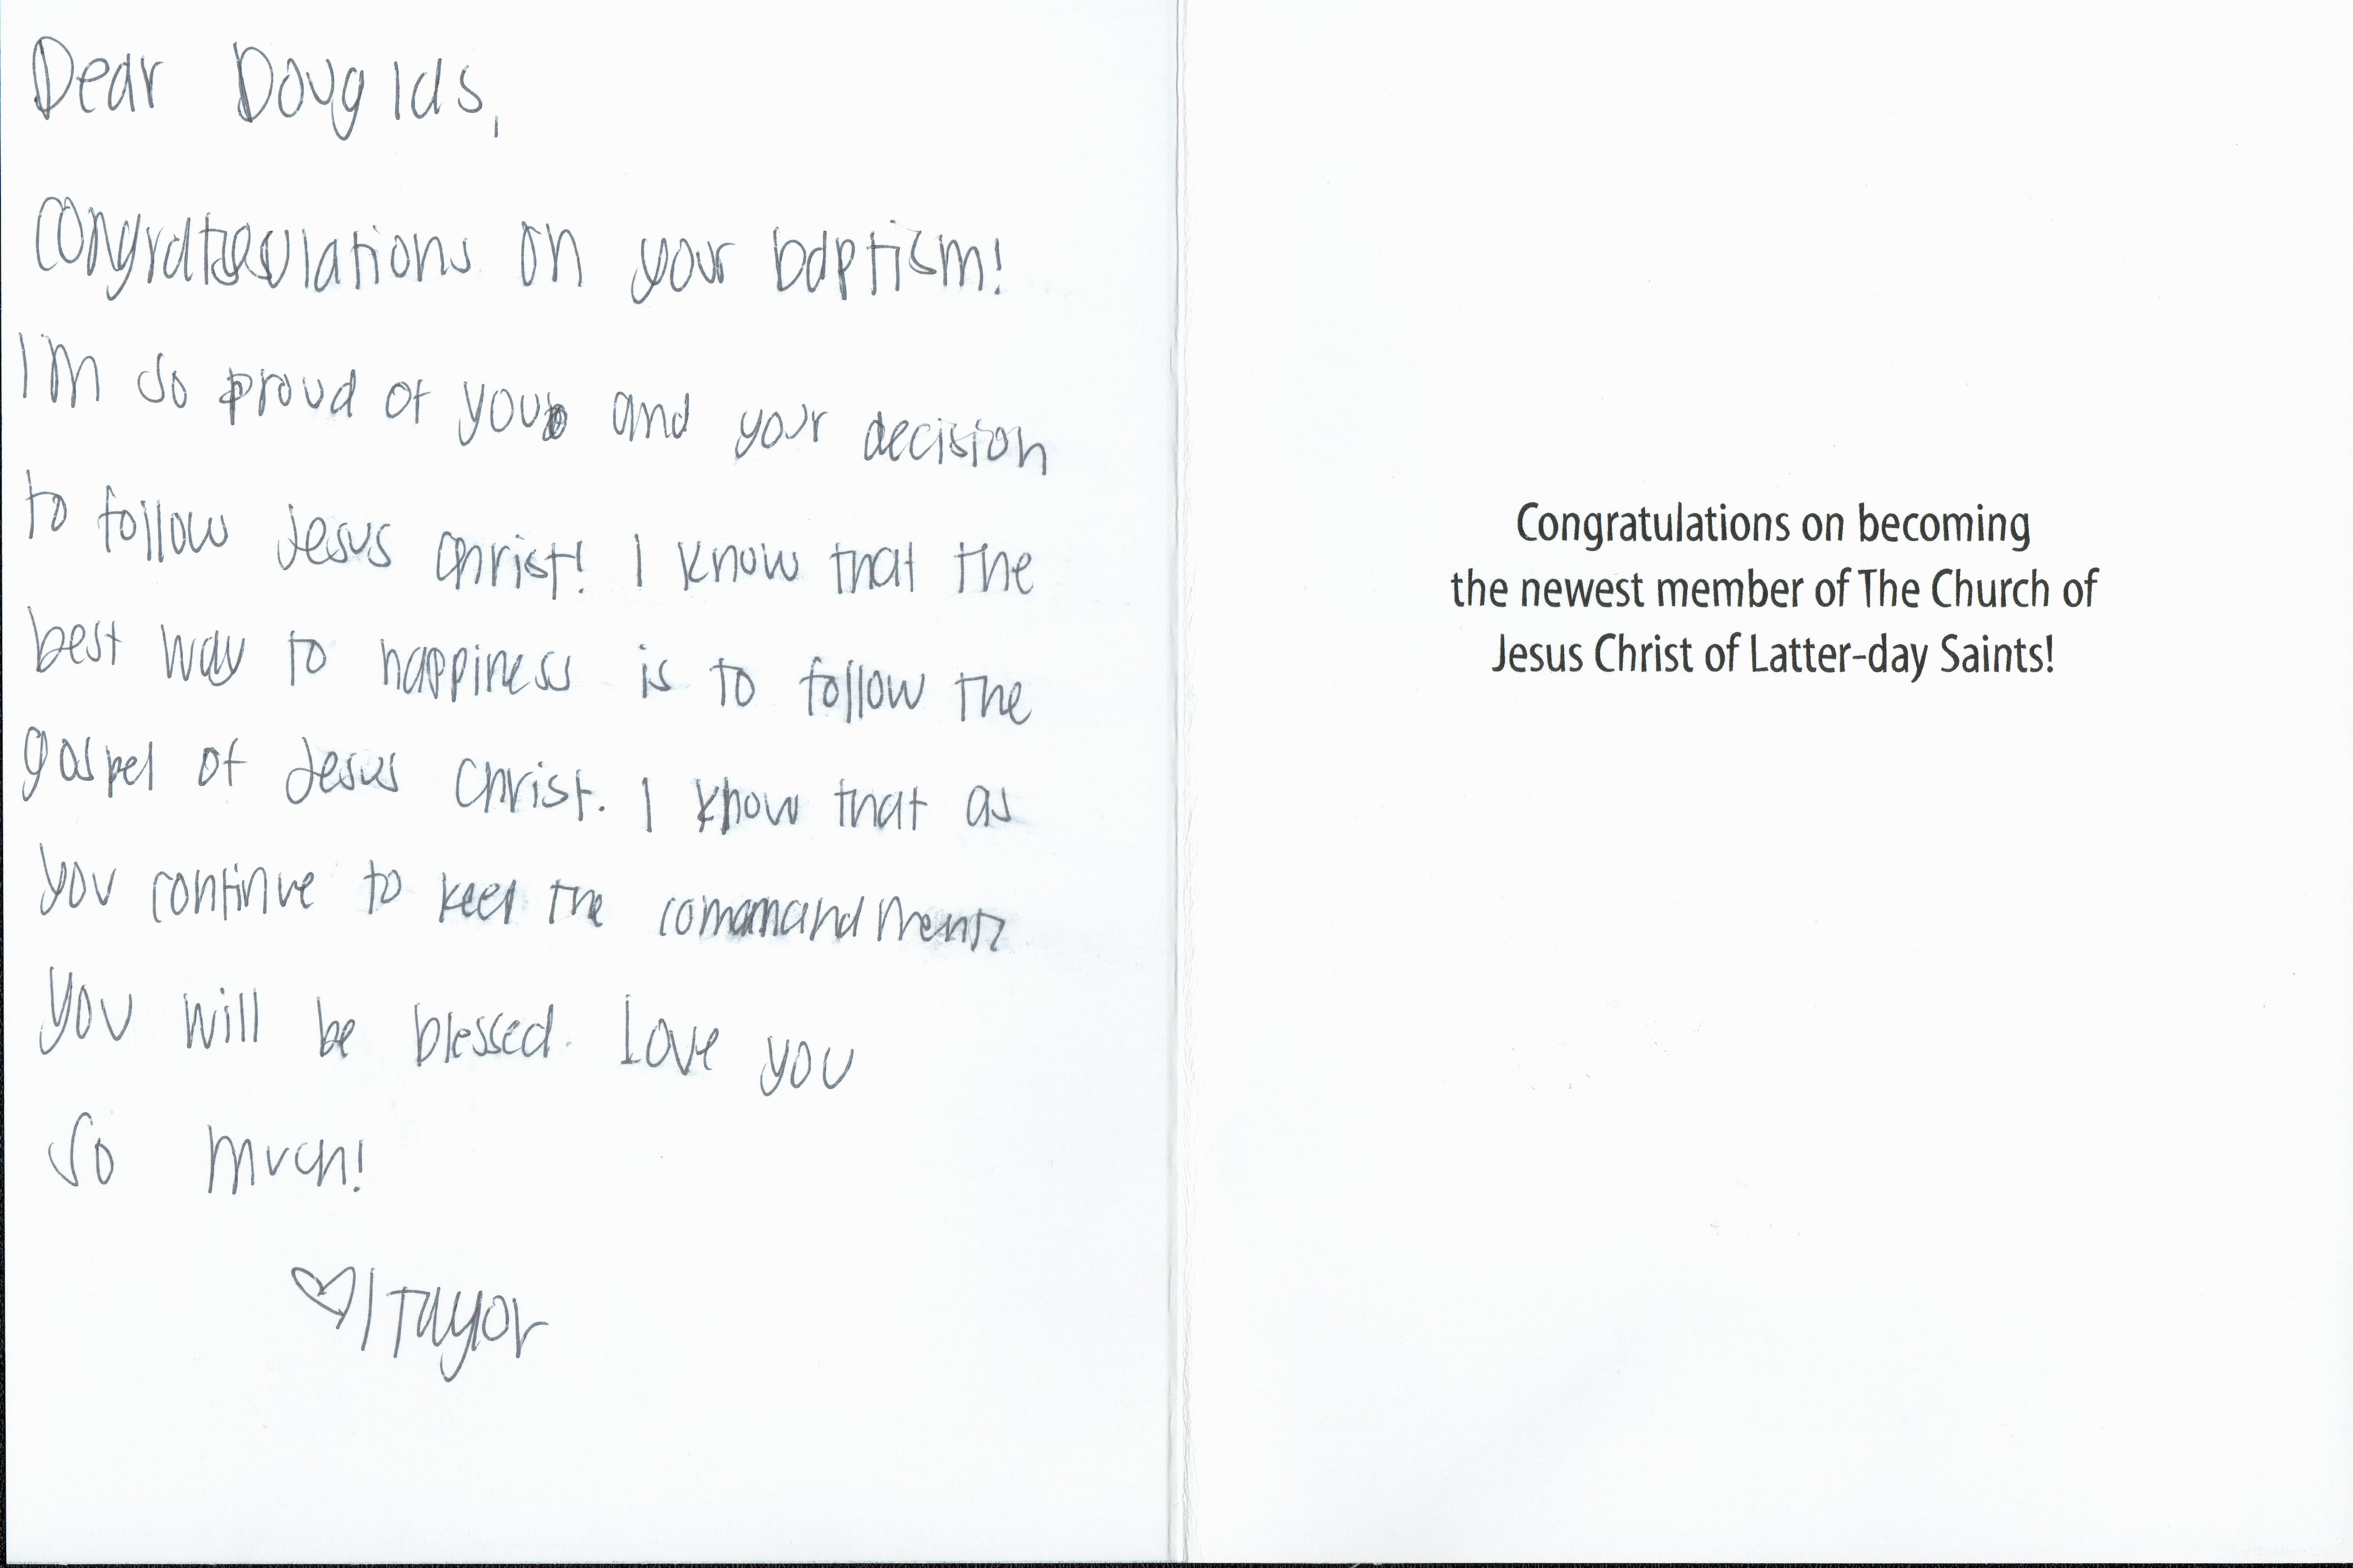 Dear Douglas,
Congratulations on your baptism!
I'm so proud of you and your decision
to follow Jesus Christ! I know that the
best way to happiness is to follow the
gospel of Jesus Christ. I know that as
you continue to keep the commandments
you will be blessed. Love you
so much!
♡/Taylor
Congratulations on becoming
the newest member of The Church of
Jesus Christ of Latter-day Saints!